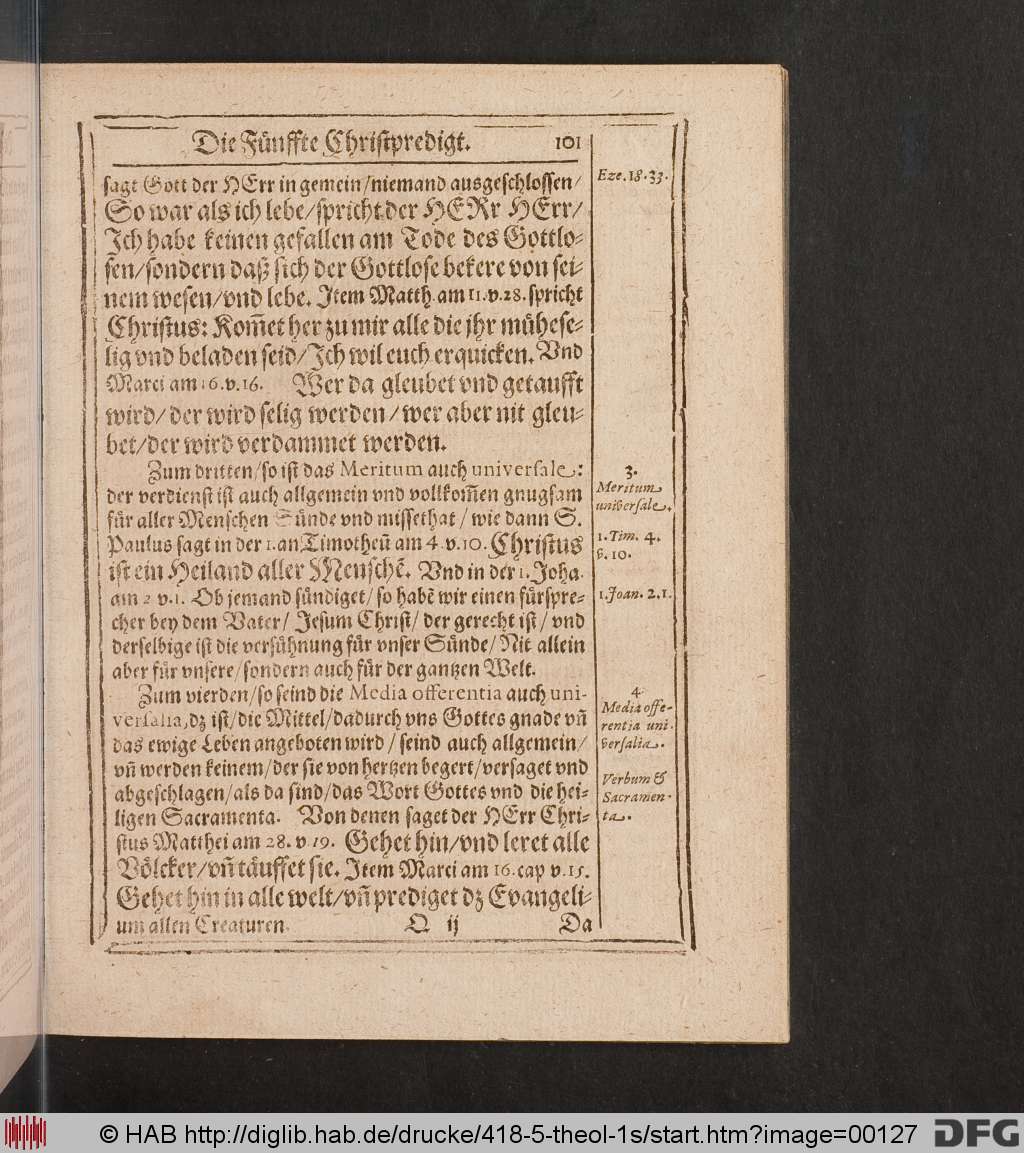 Die Fünffte Christpredigt. 101
sagt Gott der HErr in gemein/niemand ausgeschlossen/
So war als ich lebe/spricht der HERr HErr/
Ich habe keinen gefallen am Tode des Gottlo-
sen/sondern daß sich der Gottlose bekere von sei-
nem wesen/vnd lebe. Item Matth. am 11. v. 28. spricht
Christus: Kom̃et her zu mir alle die jhr mühese-
lig vnd beladen seid/Ich wil euch erquicken. Vnd
Marci am 16. v. 16. Wer da gleubet vnd getaufft
wird/der wird selig werden/wer aber nit gleu-
bet/der wird verdammet werden.
Zum dritten/so ist das Meritum auch universale:
der verdienst ist auch allgemein vnd vollkom̃en gnugsam
für aller Menschen Sünde vnd missethat/wie dann S.
Paulus sagt in der 1. an Timotheũ am 4. v. 10. Christus
ist ein Heiland aller Menschẽ. Vnd in der 1. Joha.
am 2 v. 1. Ob jemand sündiget/so habẽ wir einen fürspre-
cher bey dem Vater/Jesum Christ/der gerecht ist/vnd
derselbige ist die versühnung für vnser Sünde/Nit allein
aber für vnsere/sondern auch für der gantzen Welt.
Zum vierden/so seind die Media offerentia auch uni-
versalia, dz ist/die Mittel/dadurch vns Gottes gnade vñ
das ewige Leben angeboten wird/seind auch allgemein/
vñ werden keinem/der sie von hertzen begert/versaget vnd
abgeschlagen/als da sind/das Wort Gottes vnd die hei-
ligen Sacramenta. Von denen saget der HErr Chri-
stus Matthei am 28. v. 19. Gehet hin/vnd leret alle
Völcker/vñ täuffet sie. Item Marci am 16. cap v. 15.
Gehet hin in alle welt/vñ prediget dz Evangeli-
um allen Creaturen.
Q ij Da
Eze. 18. 33.
3.
Meritum
universale.
1. Tim. 4.
v. 10.
1. Joan. 2. 1.
4
Media offe-
rentia uni-
versalia.
Verbum &
Sacramen-
ta.
© HAB http://diglib.hab.de/drucke/418-5-theol-1s/start.htm?image=00127
DFG